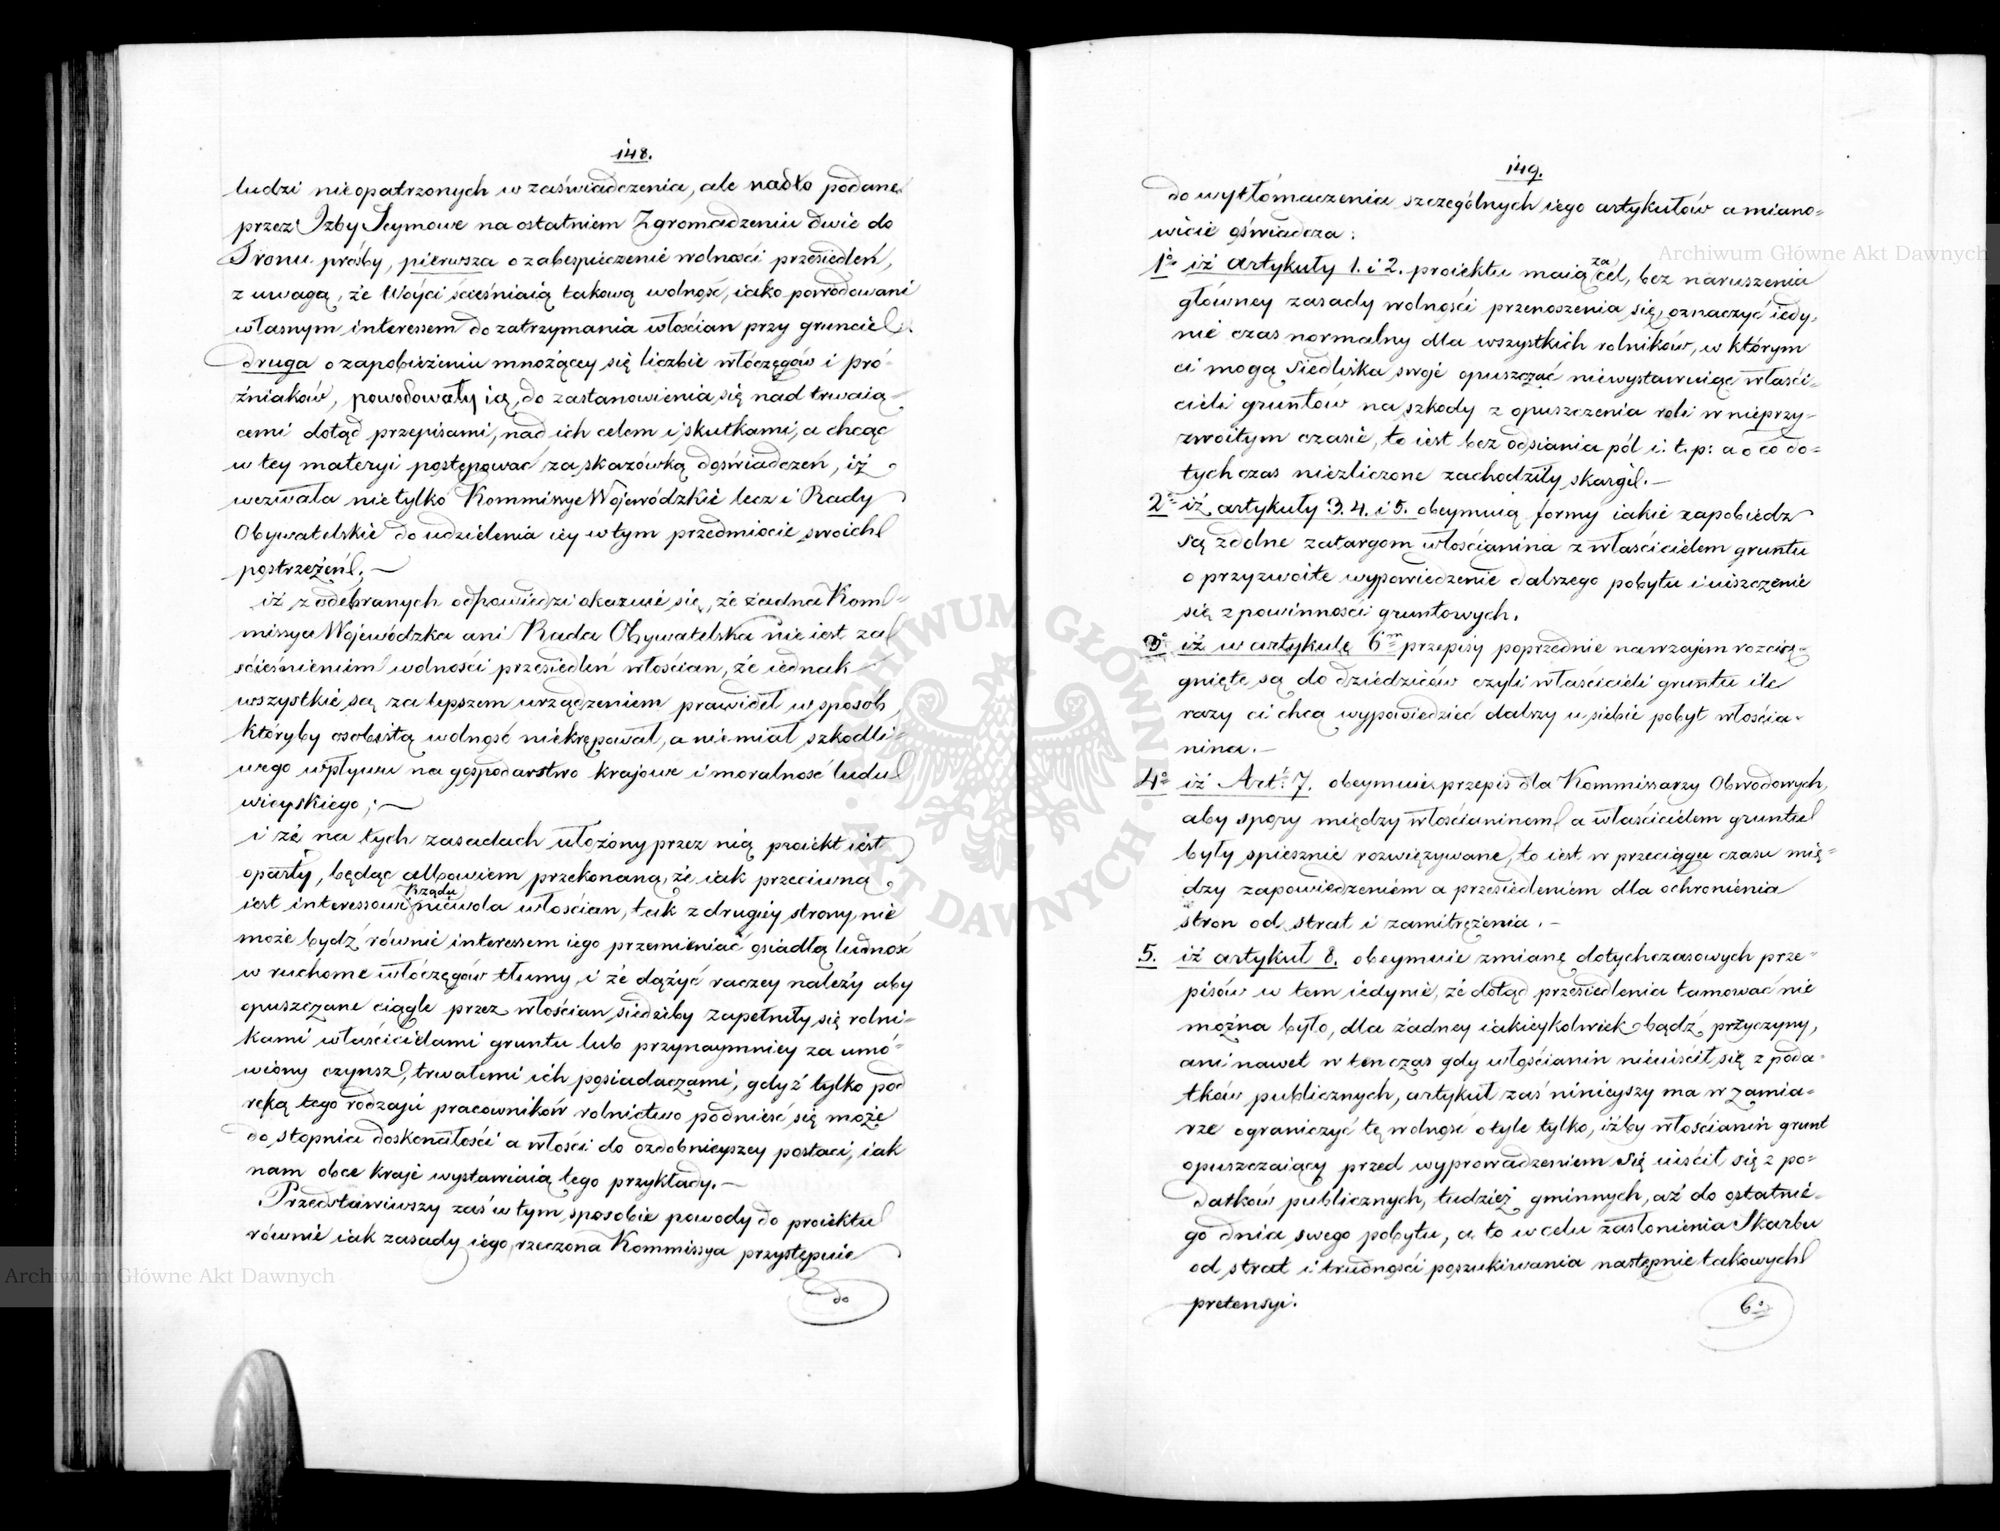 148.
ludzi nieopatrzonych w zaświadczenia, ale nadto podane
przez Izby Seymowe na ostatniem Zgromadzeniu dwie do
Tronu prośby, pierwsza o zabespieczenie wolności przesiedleń,
z uwagą, że Wóyci ścieśniaią takową wolność, iako powodowani
własnym interessem do zatrzymania włościan przy gruncie
druga o zapobieżeniu mnożącey się liczbie włóczęgów i pró-
żniaków, powodowały ią, do zastanowienia się nad trwaią-
cemi dotąd przepisami, nad ich celem i skutkami, a chcąc
w tey materyi postępować za skazówką doświadczeń, iż
wezwała nie tylko Kommissye Wojewódzkie lecz i Rady
Obywatelskie do udzielenia iey w tym przedmiocie swoich
postrzeżeń; —
iż z odebranych odpowiedzi okazuie się, że żadna Kom-
missya Wojewódzka ani Rada Obywatelska nie iest za
ścieśnieniem wolności przesiedleń włościan, że iednak
wszystkie są za lepszem urządzeniem prawideł w sposób,
któryby osobistą wolność niekrępował, a nie miał szkodli-
wego wpływu na gospodarstwo krajowe i moralność ludu
wieyskiego; —
i że na tych zasadach ułożony przez nią proiekt iest
oparty, będąc albowiem przekonaną, że iak przeciwną
Rządu
iest interessowi niewola włościan, tak z drugiéy strony, nie
może bydź równie interessem iego przemieniać osiadłą ludność
w ruchome włóczęgów tłumy, i że dążyć raczey należy aby
opuszczane ciągle przez włościan siedziby zapełniły się rolni-
kami właścicielami gruntu lub przynaymniey za umó-
wiony czynsz, trwałemi ich posiadaczami, gdyż tylko pod
ręką tego rodzaju pracowników rolnictwo podnieść się może
do stopnia doskonałości a włości do ozdobnieyszey postaci, iak
nam obce kraje wystawiaią tego przykłady. —
Przedstawiwszy zaś w tym sposobie powody do proiektu
równie iak zasady iego, rzeczona Kommissya przystępuie
do
149.
do wytłómaczenia szczególnych iego artykułów a miano-
wicie oświadcza:
1° iż artykuły 1. i 2. proiektu maią za cel, bez naruszenia
główney zasady wolności przenoszenia się, oznaczyć iedy-
nie czas normalny dla wszystkich rolników, w którym
ci mogą siedliska swoje opuszczać niewystawuiąc właści-
cieli gruntów na szkody z opuszczenia roli w nieprzy-
zwoitym czasie, to iest bez odsiania pól i: t. p: a o co do-
tychczas niezliczone zachodziły skargi. —
2° iż artykuły 3. 4. i 5. obeymuią formy iakie zapobiedz
są zdolne zatargom włościanina z właścicielem gruntu
o przyzwoite wypowiedzenie dalszego pobytu i uiszczenie
się z powinności gruntowych.
3° iż w artykule 6m przepisy poprzednie nawzajem rozcią-
gnięte są do dziedziców czyli właścicieli gruntu ile
razy ci chcą wypowiedzieć dalszy u siebie pobyt włościa-
nina. —
4° iż Art: 7. obeymuie przepis dla Kommissarzy Obwodowych,
aby spory między włościaninem a właścicielem gruntu
były spiesznie rozwięzywane, to iest w przeciągu czasu mię-
dzy zapowiedzeniem a przesiedleniem dla ochronienia
stron od strat i zamitrężenia. —
5. iż artykuł 8. obeymuie zmianę dotychczasowych prze-
pisów w tem iedynie, że dotąd przesiedlenia tamować nie
można było, dla żadney iakieykolwiek bądź przyczyny,
ani nawet w tenczas gdy włościanin nieuiścił się z poda-
tków publicznych, artykuł zaś ninieyszy ma w zamia-
rze ograniczyć tę wolność o tyle tylko, iżby włościanin grunt
opuszczaiący przed wyprowadzeniem się uiścił się z po-
datków publicznych, tudzież gminnych, aż do ostatnie-
go dnia swego pobytu, a to w celu zasłonienia Skarbu
od strat i trudności poszukiwania następnie takowych
pretensyi.
6°
Archiwum Główne Akt Dawnych
Archiwum Główne Akt Dawnych
ARCHIWUM GŁÓWNE AKT DAWNYCH